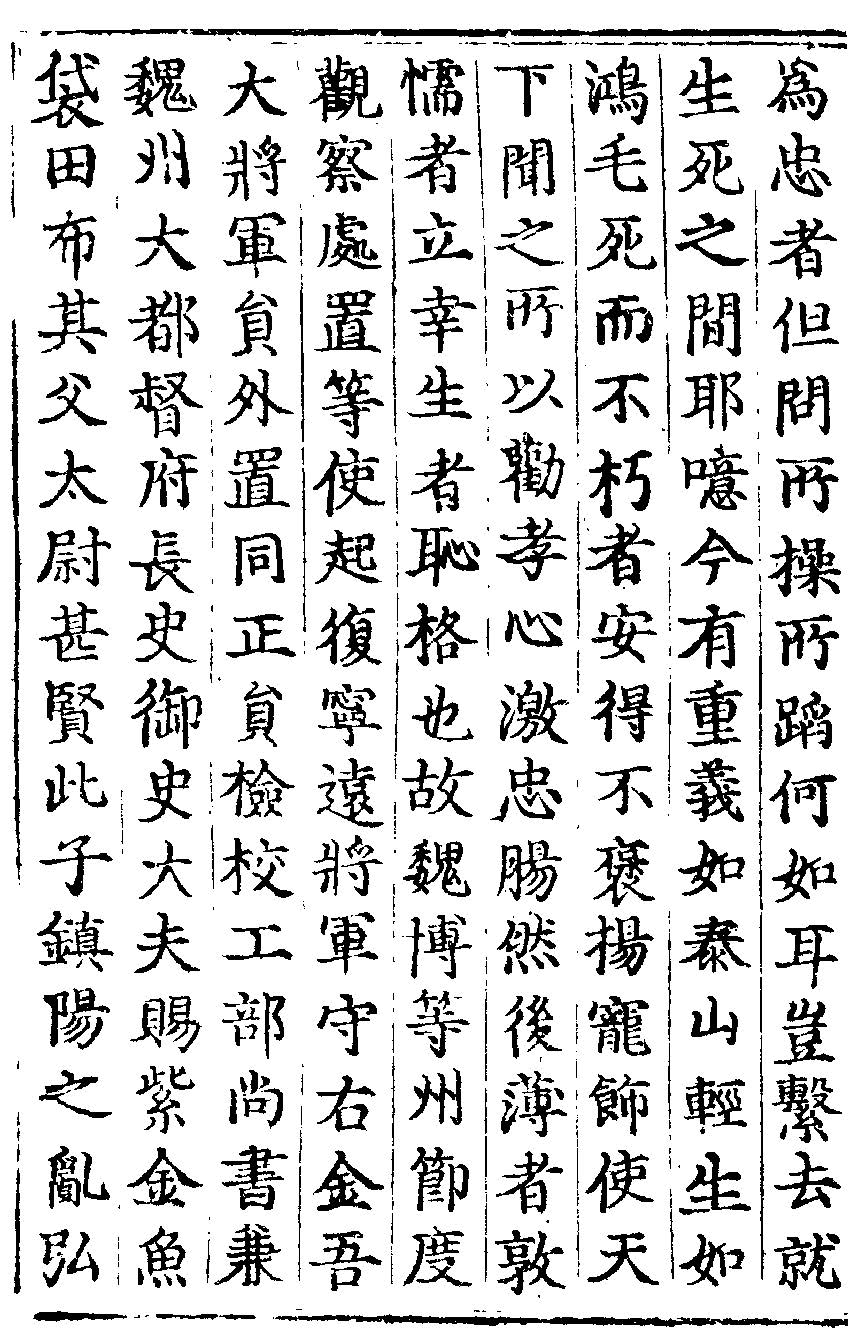 為忠者但問所操所蹈何如耳豈繫去就
生死之間耶噫今有重義如泰山輕生如
鴻毛死而不朽者安得不襃揚寵飾使天
下聞之所以勸孝心激忠腸然後薄者敦
懦者立幸生者恥格也故魏博等州節度
觀察處置等使起復寧遠將軍守右金吾
大將軍貟外置同正貟檢校工部尚書兼
魏州大都督府長史御史大夫賜紫金魚
袋田布其父太尉甚賢此子鎮陽之亂弘